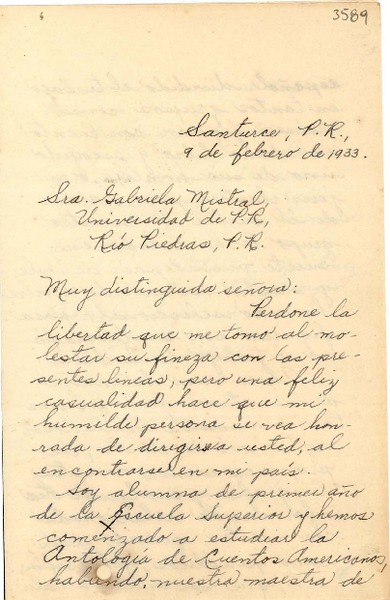 3589
Santurce, P.R.,
9 de febrero de 1933.
Sra. Gabriela Mistral,
Universidad de P.R,
Río Piedras, P.R.
Muy distinguida señora:
Perdone la
libertad que me tomo al mo-
lestar su fineza con las pre-
sentes lineas, pero una feliz
casualidad hace que mi
humilde persona se vea hon-
rada de dirigirse a usted, al
encontrarse en mi país.
Soy alumna de primer año
de la Escuela Superior y hemos
comenzado a estudiar la
Antología de Cuentos Americanos,
habiendo, nuestra maestra de